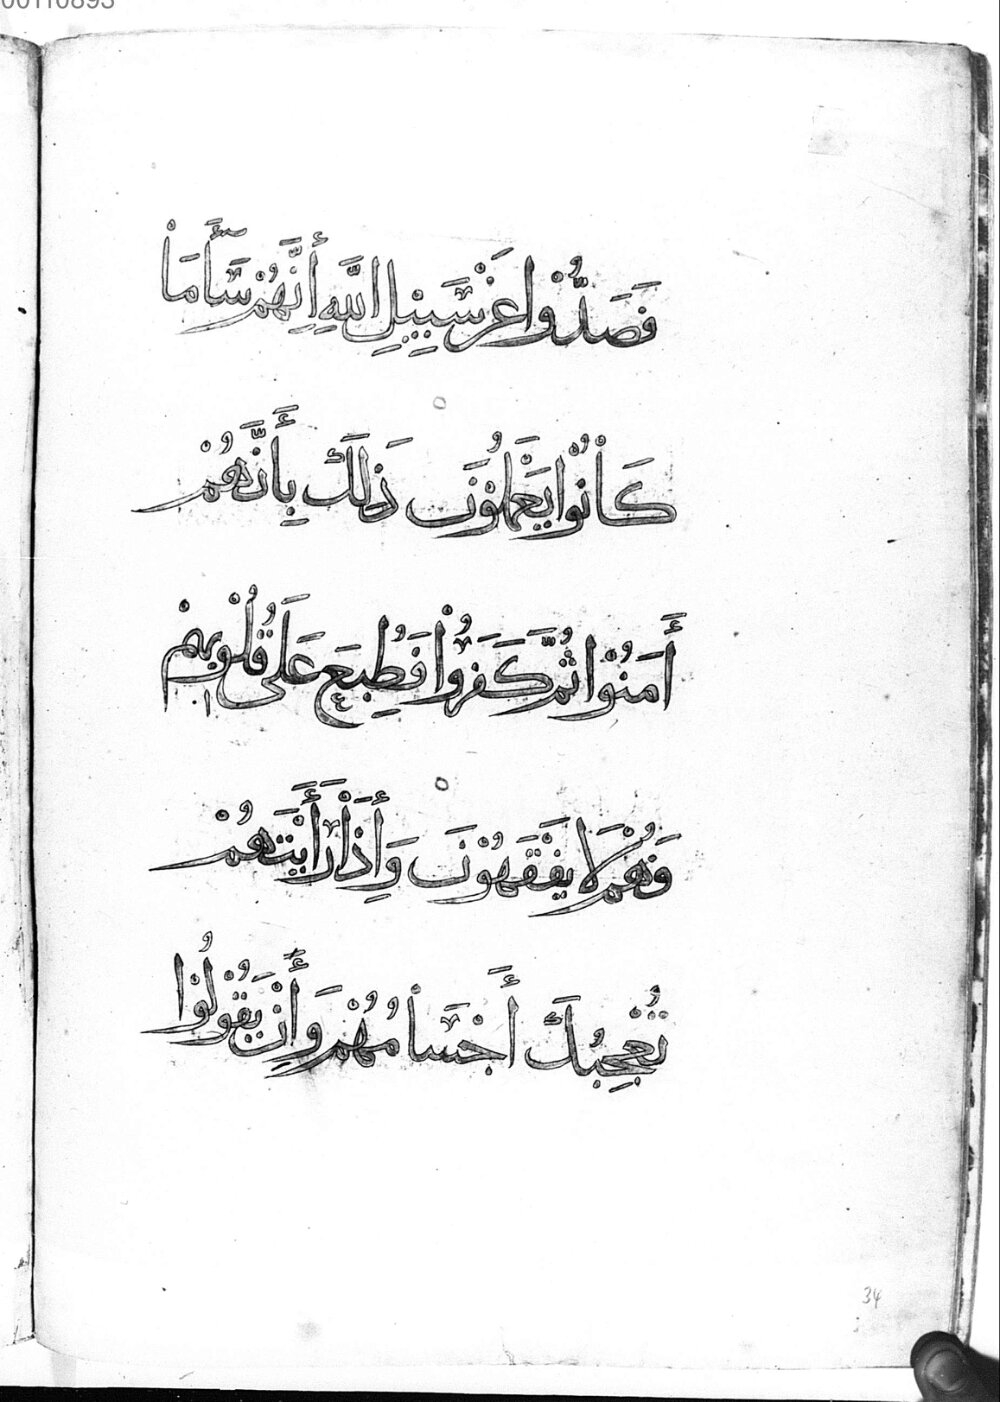 00110893
فَصَدُّوْا عَنْ سَبِيْلِ اللَّهِ أِنَّهُمْ سَأَۤءَ مَاْ
كَاْنُوْا يَعْمَلُوْنَ ذَلِكَ بِأَنَّهُمْ
أَمَنُوْا ثُمَّ كَفَرُوْا فَطُبِعَ عَلَى قُلُوْبِهِمْ
فَهُمْ لَا يَفْقَهُوْنَ وَأِذَاْ رَأَيْتَهُمْ
تُعْجِبُكَ أَجْسَاْمُهُمْ وَأِنْ يَقُوْلُوْا
34